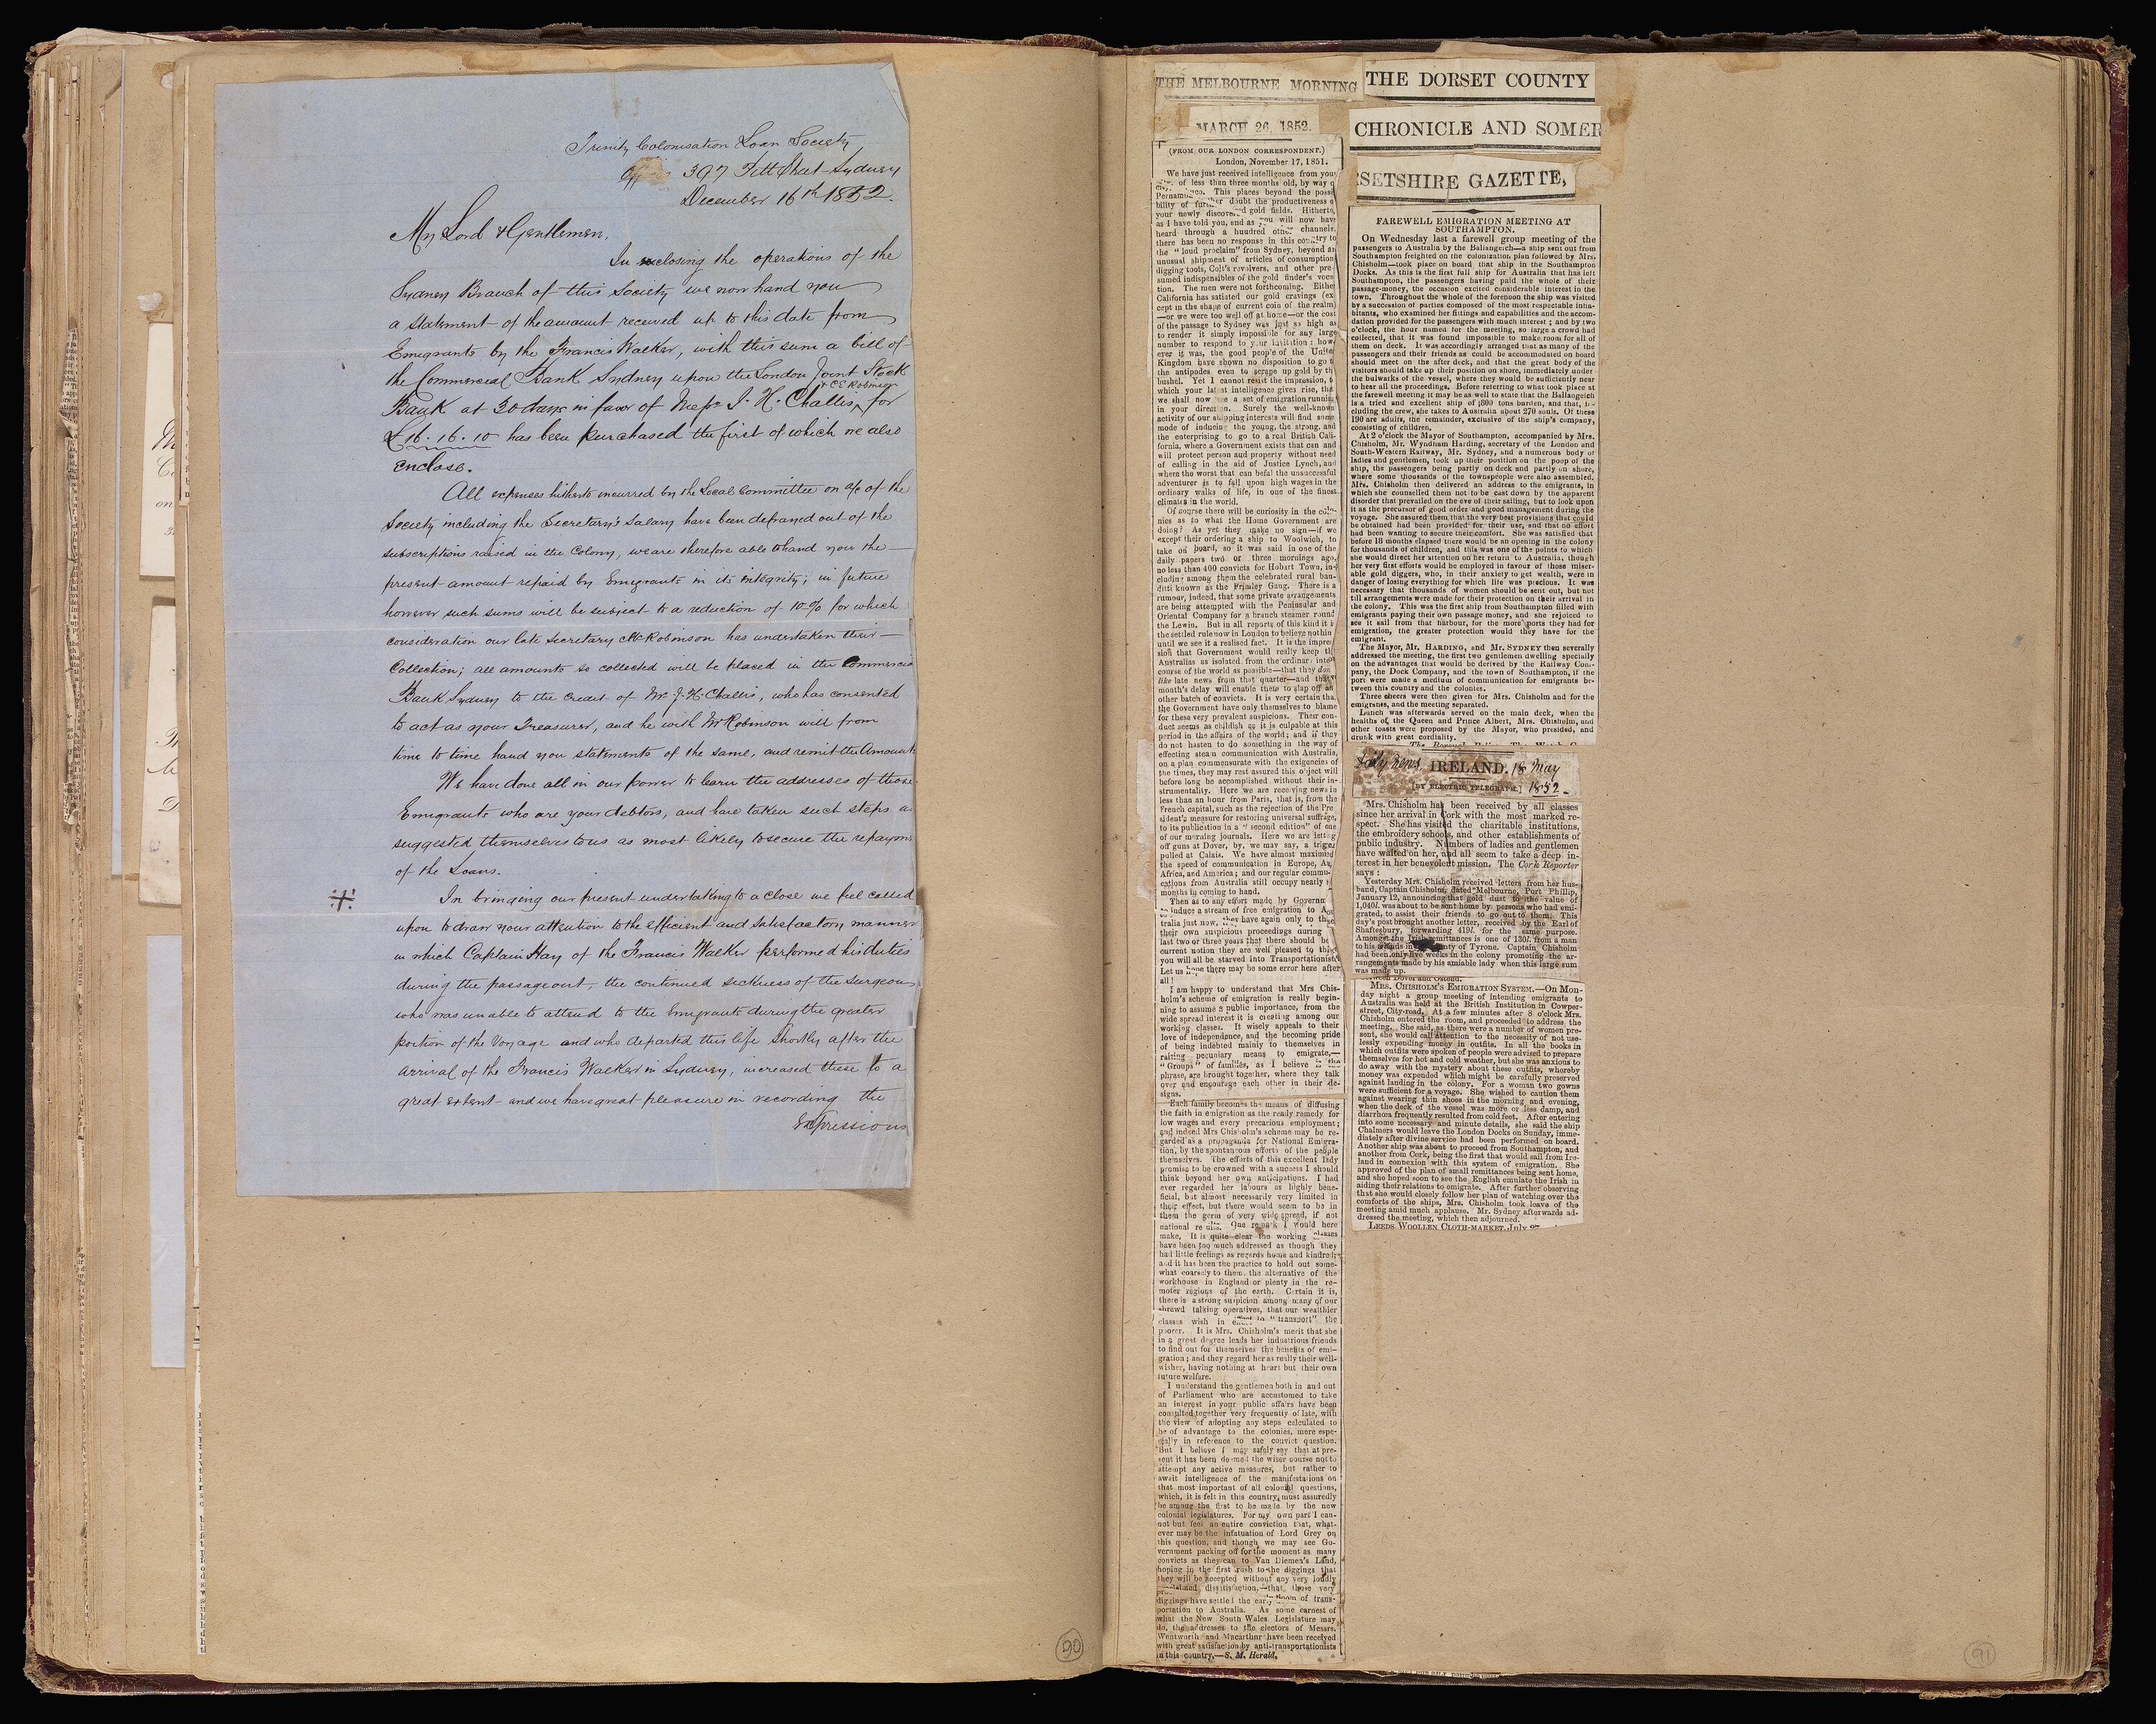 Trinity Colonisation Loan Society
397 Pitt Street Sydney
December 16th 1852.
My Lord & Gentlemen,
In enclosing the operations of the
Sydney Branch of this Society we now hand you
a statement of the amount received up to this date from
Emigrants by the Francis Walker, with this sum a bill of
the Commercial Bank Sydney upon the London Joint Stock
& C E Robinson
Bank at 30 days in favor of Messrs J. H. Challis, for
£16.16.10 has been purchased the first of which we also
enclose.
All expenses hitherto incurred by the Local Committee on a/c of the
Society including the Secretary's Salary have been defrayed out of the
subscriptions raised in the Colony, we are therefore able to hand you the
present amount repaid by Emigrants in its integrity; in future
however such sums will be subject to a reduction of 10% for which
consideration our late Secretary Mr Robinson has undertaken their
Collection; all amounts so collected will be placed in the Commercia
Bank Sydney to the Credit of Mr J. H. Challis, who has consented
to act as your Treasurer, and he with Mr Robinson will from
time to time hand you statements of the same, and remit the Amounts
We have done all in our power to learn the addresses of those
Emigrants who are your debtors, and have taken such steps as
suggested themselves to us as most likely to secure the repaym
of the Loans.
In bringing our present undertaking to a close we feel called
upon to draw your attention to the efficient and satisfactory manner
in which Captain Hay of the Francis Walker performed his duties
during the passage out, the continued sickness of the Surgeon
who was unable to attend to the Emigrants during the greater
portion of the Voyage and who departed this life shortly after the
arrival of the Francis Walker in Sydney, increased these to a
great extent and we have great pleasure in recording the
Expressions
90
THE MELBOURNE MORNING
MARCH 26, 1852.
(FROM OUR LONDON CORRESPONDENT.)
London, November 17, 1851.
We have just received intelligence from your
of less than three months old, by way o
This places beyond the possi
bility of further doubt the productiveness o
your newly discovered gold fields. Hitherto,
as I have told you, and as you will now have
heard through a hundred other channels,
there has been no response in this country to
the "loud proclaim" from Sydney, beyond an
unusual shipment of articles of consumption
digging tools, Colt's revolvers, and other pre-
sumed indispensibles of the gold finder's voca
tion. The men were not forthcoming. Eithe
California has satiated our gold cravings (ex
cept in the shape of current coin of the realm)
—or we were too well off at home—or the cost
of the passage to Sydney was just so high as
to render it simply impossible for any large
number to respond to your invitation: how-
ever it was, the good people of the Unite
Kingdom have shown no disposition to go t
the antipodes even to scrape up gold by th
bushel. Yet I cannot resist the impression, t
which your latest intelligence gives rise, tha
we shall now see a set of emigration runnin
in your direction. Surely the well-known
activity of our shipping interests will find some
mode of inducing the young, the strong, and
the enterprising to go to a real British Cali-
fornia, where a Government exists that can and
will protect person and property without need
of calling in the aid of Justice Lynch, and
where the worst that can befal the unsuccessful
adventurer is to fall upon high wages in the
ordinary walks of life, in one of the finest
climates in the world.
Of course there will be curiosity in the colo-
nies as to what the Home Government are
doing? As yet they make no sign—if we
except their ordering a ship to Woolwich, to
take on board, so it was said in one of the
daily papers two or three mornings ago,
no less than 400 convicts for Hobart Town, in-
cluding among them the celebrated rural ban-
ditti known as the Frimley Gang. There is a
rumour, indeed, that some private arrangements
are being attempted with the Peninsular and
Oriental Company for a branch steamer round
the Lewin. But in all reports of this kind it i
the settled rule now in London to believe nothin
until we see it a realised fact. It is the impres
sion that Government would really keep th
Australias as isolated from the ordinary inter
course of the world as possible—that they don
like late news from that quarter—and that
month's delay will enable them to slap off an
other batch of convicts. It is very certain tha
the Government have only themselves to blame
for these very prevalent suspicions. Their con-
duct seems as childish as it is culpable at this
period in the affairs of the world; and if they
do not hasten to do something in the way of
effecting steam communication with Australia,
on a plan commensurate with the exigencies of
the times, they may rest assured this object will
before long be accomplished without their in-
strumentality. Here we are receiving news in
less than an hour from Paris, that is, from the
French capital, such as the rejection of the Pre
sident's measure for restoring universal suffrage,
to its publication in a "second edition" of one
of our morning journals. Here we are letting
off guns at Dover, by, we may say, a trigger
pulled at Calais. We have almost maximed
the speed of communication in Europe, As
Africa, and America; and our regular commu-
cations from Australia still occupy nearly
months in coming to hand.
Then as to any effort made by Governm
to induce a stream of free emigration to Aus
tralia just now, they have again only to tha
their own suspicious proceedings during
last two or three years that there should be
current notion they are well pleased to think
you will all be starved into Transportationists
Let us hope there may be some error here after
all!
I am happy to understand that Mrs Chis-
holm's scheme of emigration is really begin-
ning to assume a public importance, from the
wide spread interest it is creating among our
working classes. It wisely appeals to their
love of independence, and the becoming pride
of being indebted mainly to themselves in
raising pecuniary means to emigrate,—
"Groups" of families, as I believe is the
phrase, are brought together, where they talk
over and encourage each other in their de-
signs.
Each family becomes the means of diffusing
the faith in emigration as the ready remedy for
low wages and every precarious employment;
and indeed Mrs Chisholm's scheme may be re-
garded as a propaganda for National Emigra-
tion, by the spontaneous efforts of the people
themselves. The efforts of this excellent lady
promise to be crowned with a success I should
think beyond her own anticipations. I had
ever regarded her labours as highly bene-
ficial, but almost necessarily very limited in
their effect, but there would seem to be in
them the germ of very wide spread, if not
national results. One remark I would here
make, It is quite clear the working classes
have been too much addressed as though they
had little feelings as regards home and kindred;
and it has been the practice to hold out some-
what coarsely to them, the alternative of the
workhouse in England or plenty in the re-
moter regions of the earth. Certain it is,
there is a strong suspicion among many of our
shrewd talking operatives, that our wealthier
classes wish in to "transport" the
poorer. It is Mrs. Chisholm's merit that she
in a great degree leads her industrious friends
to find out for themselves the benefits of emi-
gration; and they regard her as really their well-
wisher, having nothing at heart but their own
future welfare.
I understand the gentlemen both in and out
of Parliament who are accustomed to take
an interest in your public affairs have been
consulted together very frequently of late, with
the view of adopting any steps calculated to
be of advantage to the colonies, more espe-
cially in reference to the convict question.
But I believe I may safely say that at pre-
sent it has been deemed the wiser course not to
attempt any active measures, but rather to
await intelligence of the manifestations on
that most important of all colonial questions,
which, it is felt in this country, must assuredly
be among the first to be made by the new
colonial legislatures. For my own part I can-
not but feel an entire conviction that, what-
ever may be the infatuation of Lord Grey on
this question, and though we may see Go-
vernment packing off for the moment as many
convicts as they can to Van Diemen's Land,
hoping in the first rush to the diggings that
they will be accepted without any very loudly
dissatisfaction,—that those very
diggings have settled the early doom of trans-
portation to Australia. As some earnest of
what the New South Wales Legislature may
do, the addresses to the electors of Messrs.
Wentworth and Macarthur have been received
with great satisfaction by anti-transportationists
in this country.—S. M. Herald.
THE DORSET COUNTY
CHRONICLE AND SOMER
RSETSHIRE GAZETTE,
FAREWELL EMIGRATION MEETING AT
SOUTHAMPTON.
On Wednesday last a farewell group meeting of the
passengers to Australia by the Ballangeich—a ship sent out from
Southampton freighted on the colonization plan followed by Mrs.
Chisholm—took place on board that ship in the Southampton
Docks. As this is the first full ship for Australia that has left
Southampton, the passengers having paid the whole of their
passage-money, the occasion excited considerable interest in the
town. Throughout the whole of the forenoon the ship was visited
by a succession of parties composed of the most respectable inha-
bitants, who examined her fittings and capabilities and the accom-
dation provided for the passengers with much interest; and by two
o'clock, the hour named for the meeting, so large a crowd had
collected, that it was found impossible to make room for all of
them on deck. It was accordingly arranged that as many of the
passengers and their friends as could be accommodated on board
should meet on the after deck, and that the great body of the
visitors should take up their position on shore, immediately under
the bulwarks of the vessel, where they would be sufficiently near
to hear all the proceedings. Before referring to what took place at
the farewell meeting it may be as well to state that the Ballangeich
is a tried and excellent ship of 800 tons burden, and that, in-
cluding the crew, she takes to Australia about 270 souls. Of these
190 are adults, the remainder, exclusive of the ship's company,
consisting of children.
At 2 o'clock the Mayor of Southampton, accompanied by Mrs.
Chisholm, Mr. Wyndham Harding, secretary of the London and
South-Western Railway, Mr. Sydney, and a numerous body of
ladies and gentlemen, took up their position on the poop of the
ship, the passengers being partly on deck and partly on shore,
where some thousands of the townspeople were also assembled.
Mrs. Chisholm then delivered an address to the emigrants, in
which she counselled them not to be cast down by the apparent
disorder that prevailed on the eve of their sailing, but to look upon
it as the precursor of good order and good management during the
voyage. She assured them that the very best provisions that could
be obtained had been provided for their use, and that no effort
had been wanting to secure their comfort. She was satisfied that
before 18 months elapsed there would be an opening in the colony
for thousands of children, and this was one of the points to which
she would direct her attention on her return to Australia, though
her very first efforts would be employed in favour of those miser-
able gold diggers, who, in their anxiety to get wealth, were in
danger of losing everything for which life was precious. It was
necessary that thousands of women should be sent out, but not
till arrangements were made for their protection on their arrival in
the colony. This was the first ship from Southampton filled with
emigrants paying their own passage money, and she rejoiced to
see it sail from that harbour, for the more ports they had for
emigration, the greater protection would they have for the
emigrant.
The Mayor, Mr. HARDING, and Mr. SYDNEY then severally
addressed the meeting, the first two gentlemen dwelling specially
on the advantages that would be derived by the Railway Com-
pany, the Dock Company, and the town of Southampton, if the
port were made a medium of communication for emigrants be-
tween this country and the colonies.
Three cheers were then given for Mrs. Chisholm and for the
emigrants, and the meeting separated.
Lunch was afterwards served on the main deck, when the
healths of the Queen and Prince Albert, Mrs. Chisholm, and
other toasts were proposed by the Mayor, who presided, and
drunk with great cordiality.
Daily News IRELAND. 18 May
[BY ELECTRIC TELEGRAPH.] 1852
Mrs. Chisholm has been received by all classes
since her arrival in Cork with the most marked re-
spect. She has visited the charitable institutions,
the embroidery schools, and other establishments of
public industry. Numbers of ladies and gentlemen
have waited on her, and all seem to take a deep in-
terest in her benevolent mission. The Cork Reporter
says:
Yesterday Mrs. Chisholm received letters from her hus-
band, Captain Chisholm, dated Melbourne, Port Phillip,
January 12, announcing that gold dust to the value of
1,040l. was about to be sent home by persons who had emi-
grated, to assist their friends to go out to them. This
day's post brought another letter, received by the Earl of
Shaftesbury, forwarding 419l. for the same purpose.
Amongst the Irish remittances is one of 130l. from a man
to his friends in county of Tyrone. Captain Chisholm
had been only five weeks in the colony promoting the ar-
rangements made by his amiable lady when this large sum
was made up.
between Dover and Ostend.
MRS. CHISHOLM'S EMIGRATION SYSTEM.—On Mon-
day night a group meeting of intending emigrants to
Australia was held at the British Institution in Cowper-
street, City-road. At a few minutes after 8 o'clock Mrs.
Chisholm entered the room, and proceeded to address the
meeting. She said, as there were a number of women pre-
sent, she would call attention to the necessity of not use-
lessly expending money in outfits. In all the books in
which outfits were spoken of people were advised to prepare
themselves for hot and cold weather, but she was anxious to
do away with the mystery about these outfits, whereby
money was expended which might be carefully preserved
against landing in the colony. For a woman two gowns
were sufficient for a voyage. She wished to caution them
against wearing thin shoes in the morning and evening,
when the deck of the vessel was more or less damp, and
diarrhœa frequently resulted from cold feet. After entering
into some necessary and minute details, she said the ship
Chalmers would leave the London Docks on Sunday, imme-
diately after divine service had been performed on board.
Another ship was about to proceed from Southampton, and
another from Cork, being the first that would sail from Ire-
land in connexion with this system of emigration. She
approved of the plan of small remittances being sent home,
and she hoped soon to see the English emulate the Irish in
aiding their relations to emigrate. After further observing
that she would closely follow her plan of watching over the
comforts of the ships, Mrs. Chisholm took leave of the
meeting amid much applause. Mr. Sydney afterwards ad-
dressed the meeting, which then adjourned.
LEEDS WOOLLEN CLOTH-MARKET, July 27
91